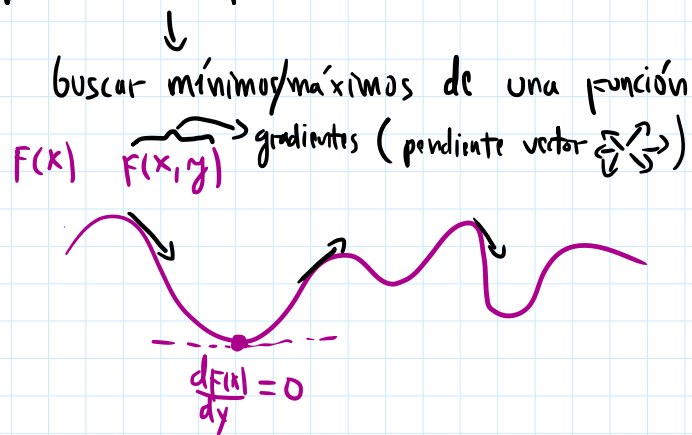 buscar mínimos/máximos de una función
F(x) F(x,y) gradientes (pendiente vector )
dF(x)/dy = 0